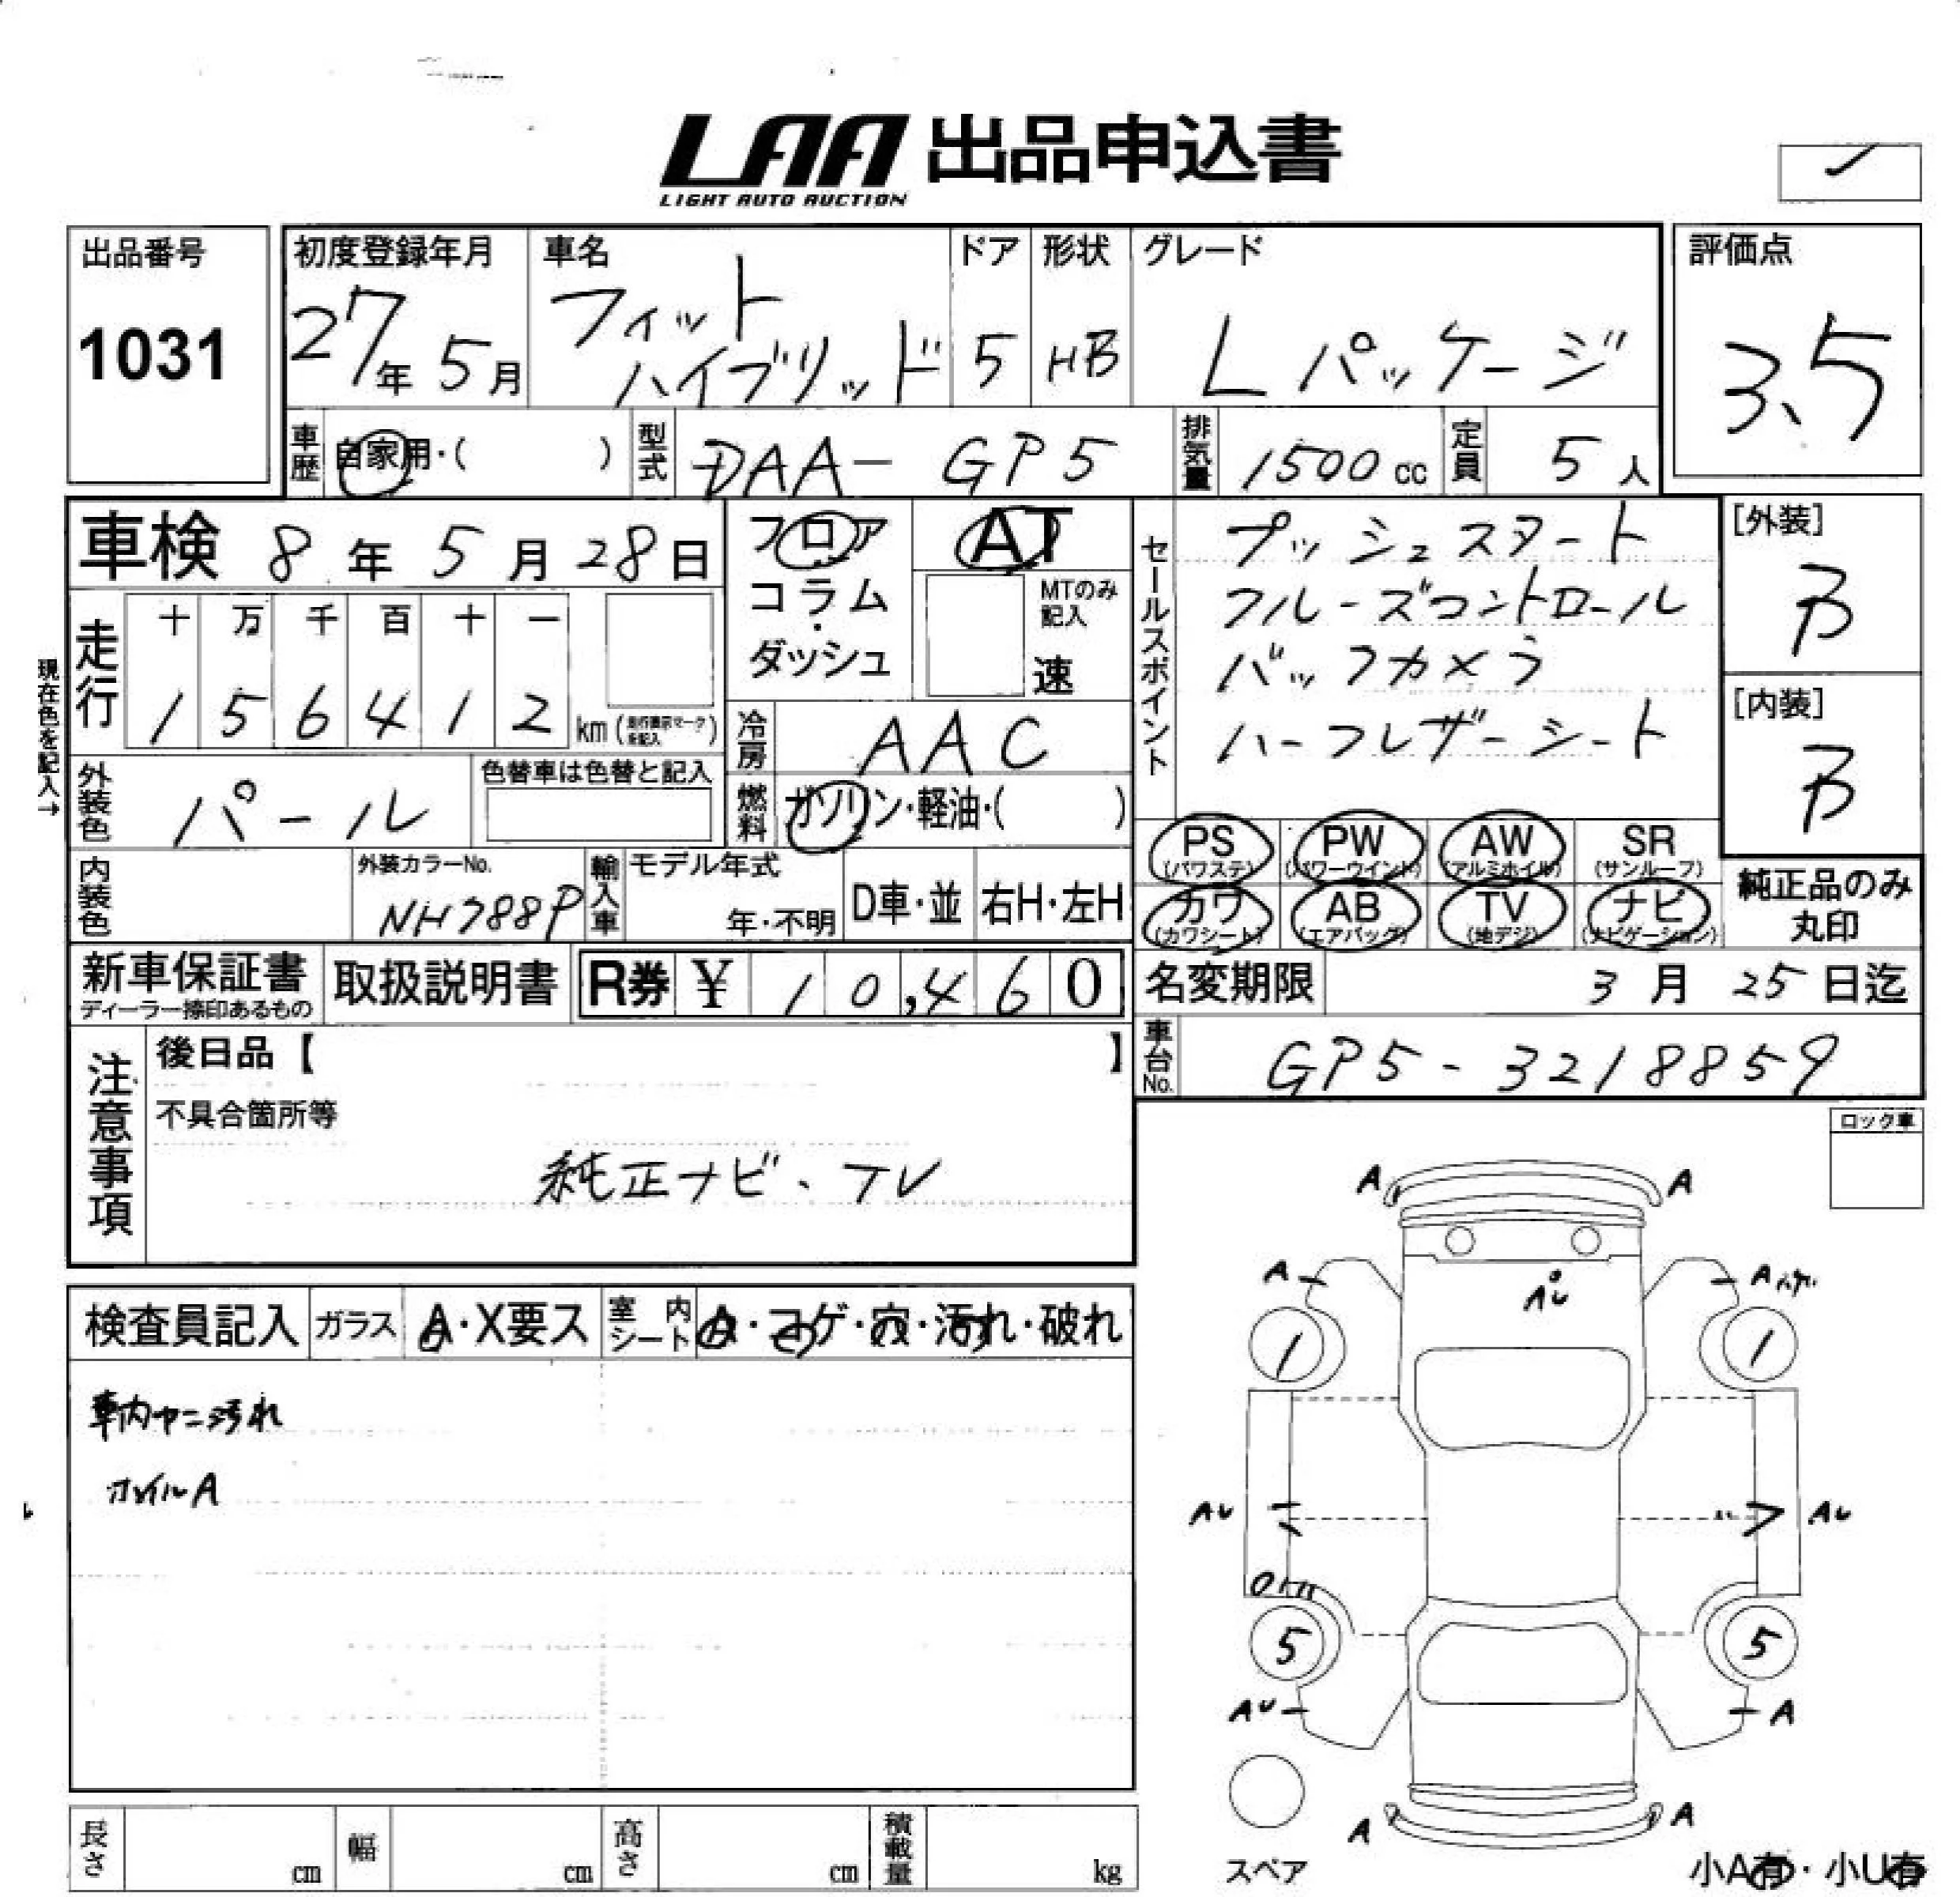 LAA 出品申込書
LIGHT AUTO AUCTION
出品番号
1031
初度登録年月
27年 5月
車名
フィット
ハイブリッド
ドア
5
形状
HB
グレード
Lパッケージ
評価点
3.5
車歴
自家用・( )
型式
DAA-GP5
排気量
1500cc
定員
5人
車検 8年 5月 28日
フロア
コラム
・
ダッシュ
AT
MTのみ
記入
速
セールスポイント
プッシュスタート
クルーズコントロール
バックカメラ
ハーフレザーシート
[外装]
B
[内装]
B
現在色を記入→
走行
十 万 千 百 十 一
1 5 6 4 1 2 km (走行表示マークを記入)
冷房
AAC
外装色
パール
色替車は色替と記入
燃料
ガソリン・軽油・( )
PS
(パワステ)
PW
(パワーウインド)
AW
(アルミホイル)
SR
(サンルーフ)
カワ
(カワシート)
AB
(エアバッグ)
TV
(地デジ)
ナビ
(ナビゲーション)
純正品のみ
丸印
内装色
外装カラーNo.
NH788P
輸入車
モデル年式
年・不明
D車・並
右H・左H
新車保証書
ディーラー捺印あるもの
取扱説明書
R券 ¥ 10,460
名変期限
3月 25日迄
車台No.
GP5-3218859
注意事項
後日品【 】
不具合箇所等
純正ナビ、TV
ロック車
検査員記入
ガラス
A・X要ス
室内シート
A・コゲ・穴・汚れ・破れ
車内ヤニ汚れ
ホイルA
A A
A A
AU
1 1
AU AU
5 5
AU A
A A
スペア
小A有・小U有
長さ
cm
幅
cm
高さ
cm
積載量
kg